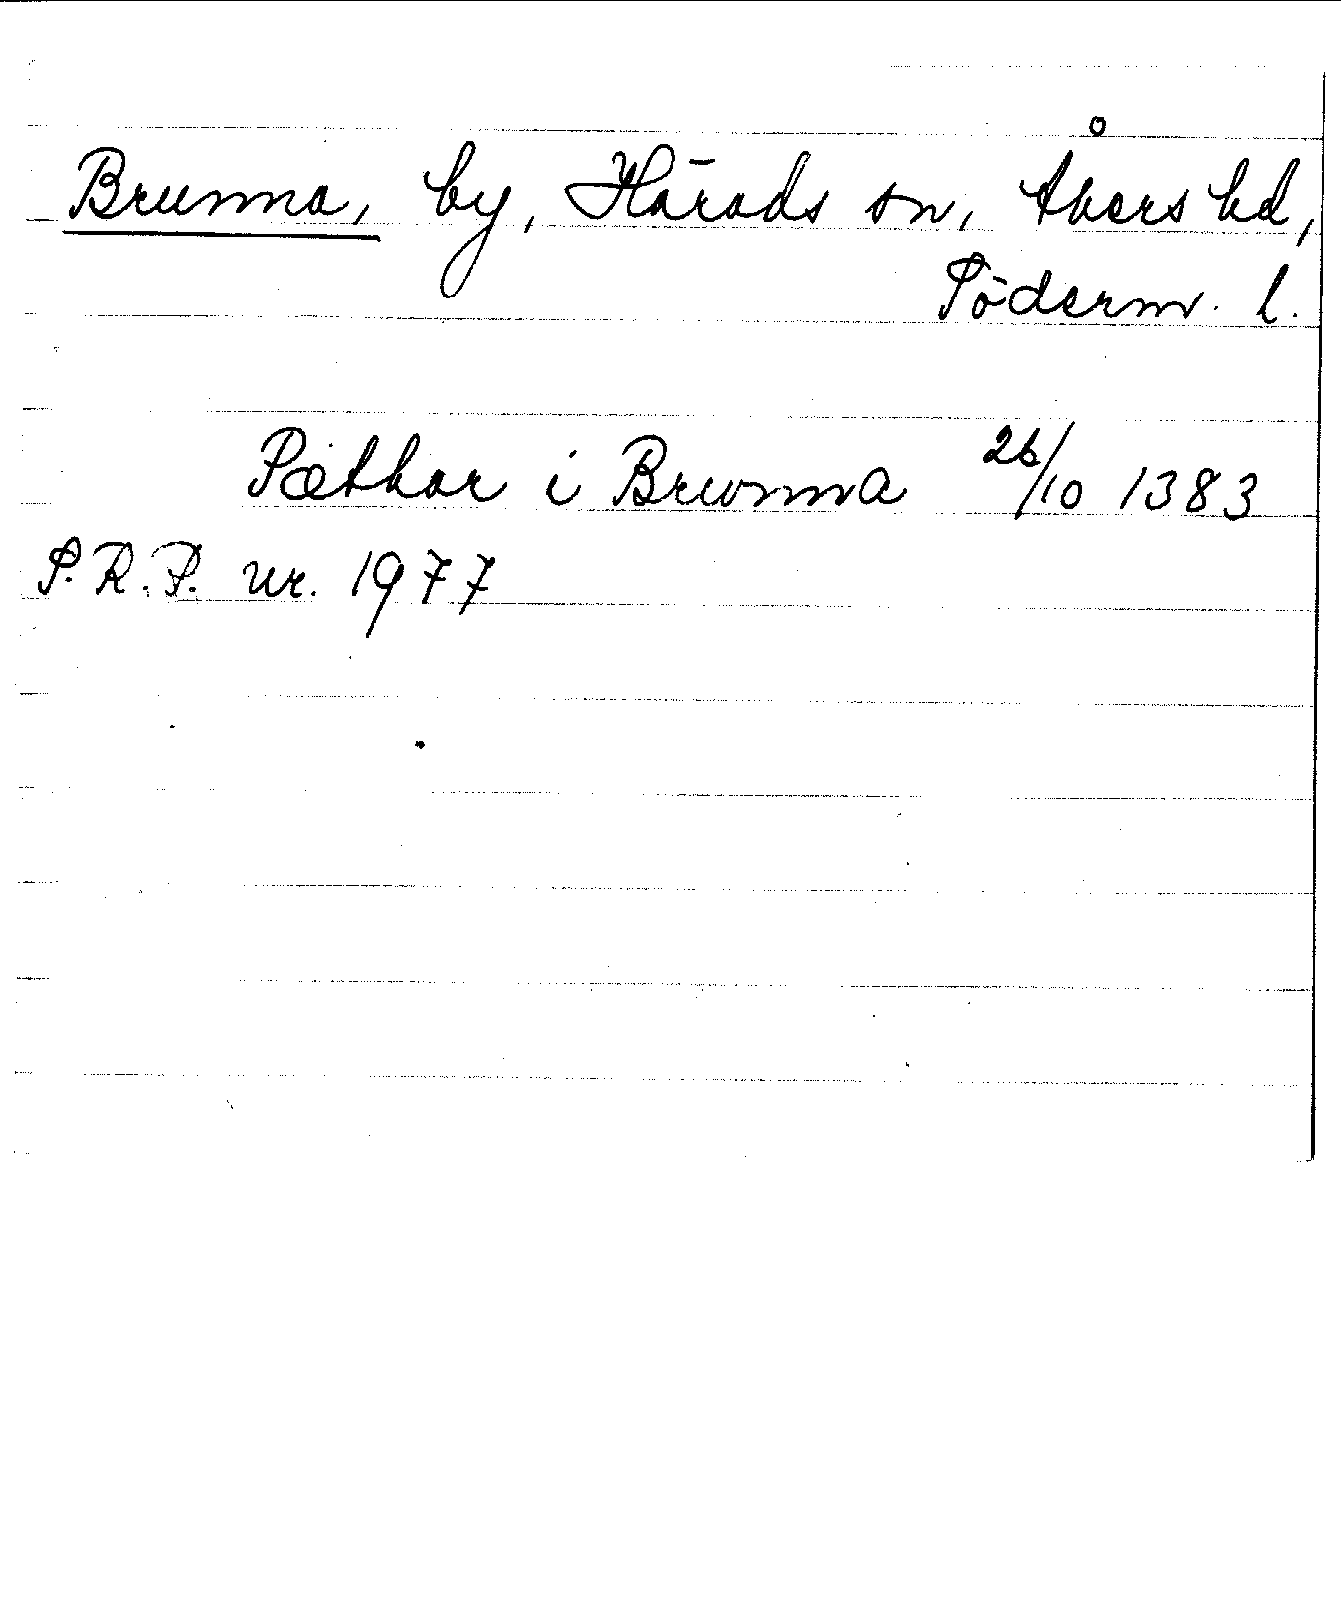 Brunna, by, Härads sn, Åkers hd,
Söderm. l.
Pæthar i Brwnna 26/10 1383
S.R.P. nr. 1977